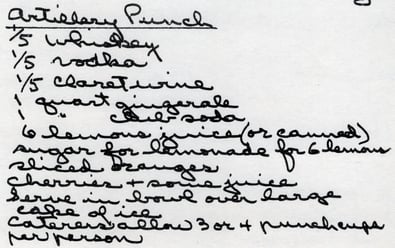 Artillery Punch
1/5 whiskey
1/5 vodka
1/5 claret wine
1 quart gingerale
1 " club soda
6 lemons juice (or canned)
sugar for lemonade for 6 lemons
sliced oranges
cherries + some juice
Serve in bowl over large
cake of ice
Caterers allow 3 or 4 punch cups
per person